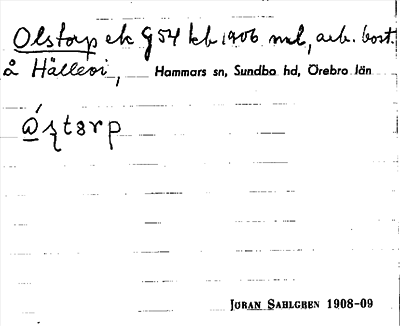 Olstorp ek G54 kb 1906 mb, arb. bost.
å Hälleri, Hammars sn, Sundbo hd, Örebro län
ó̱ʂtɜrp
JÖRAN SAHLGREN 1908-09